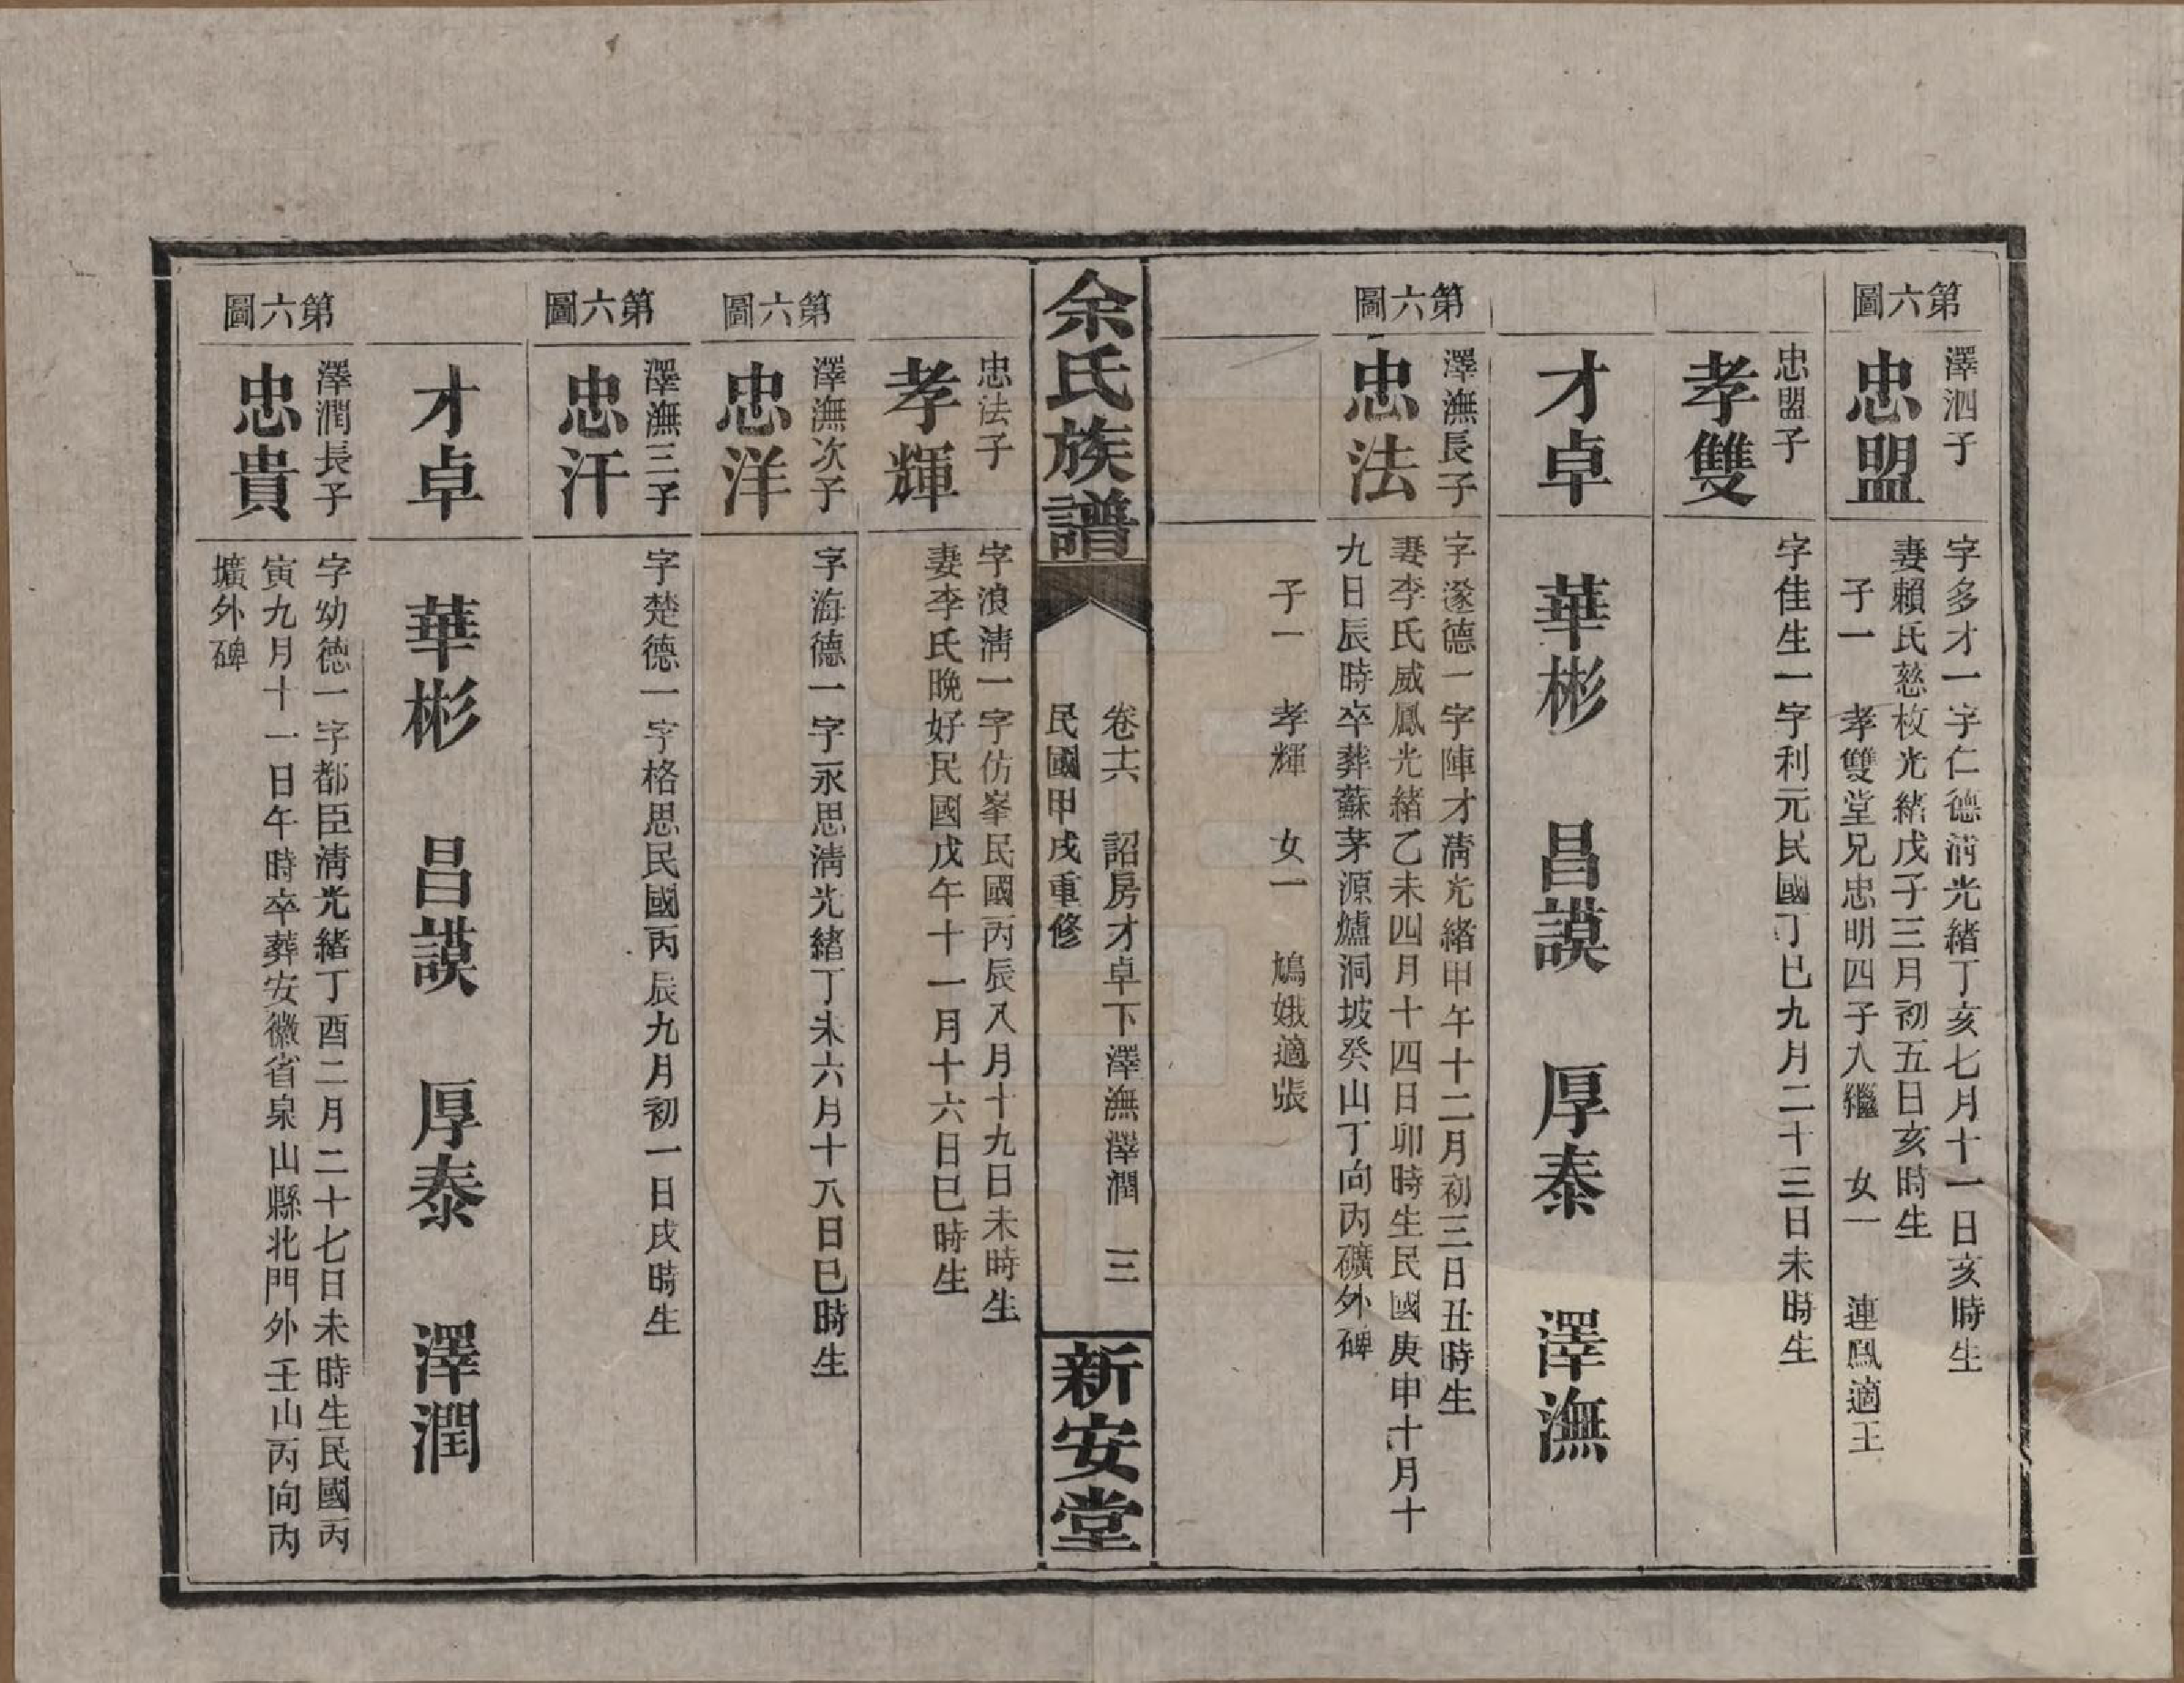 第六圖
澤泗子
忠盟
字多才一字仁德淸光緒丁亥七月十一日亥時生
妻賴氏慈枚光緒戊子三月初五日亥時生
子一　孝雙堂兄忠明四子入繼　女一　連鳳適王
忠盟子
孝雙
字佳生一字利元民國丁巳九月二十三日未時生
才卓　華彬　昌謨　厚泰　澤潕
第六圖
澤潕長子
忠法
字遂德一字陣才淸光緒甲午十二月初三日丑時生
妻李氏威鳳光緒乙未四月十四日卯時生民國庚申十月十
九日辰時卒葬蘇茅源爐洞坡癸山丁向內礦外碑
子一　孝輝　女一　鳩娥適張
余氏族譜
卷十六　詔房才卓下澤潕澤潤　三
民國甲戌重修
新安堂
忠法子
孝輝
字浪淸一字仿峯民國丙辰八月十九日未時生
妻李氏晚好民國戊午十一月十六日巳時生
第六圖
澤潕次子
忠洋
字海德一字永思淸光緒丁未六月十八日巳時生
第六圖
澤潕三子
忠汗
字楚德一字格思民國丙辰九月初一日戌時生
才卓　華彬　昌謨　厚泰　澤潤
第六圖
澤潤長子
忠貴
字幼德一字都臣淸光緒丁酉二月二十七日未時生民國丙
寅九月十一日午時卒葬安徽省泉山縣北門外壬山丙向內
壙外碑